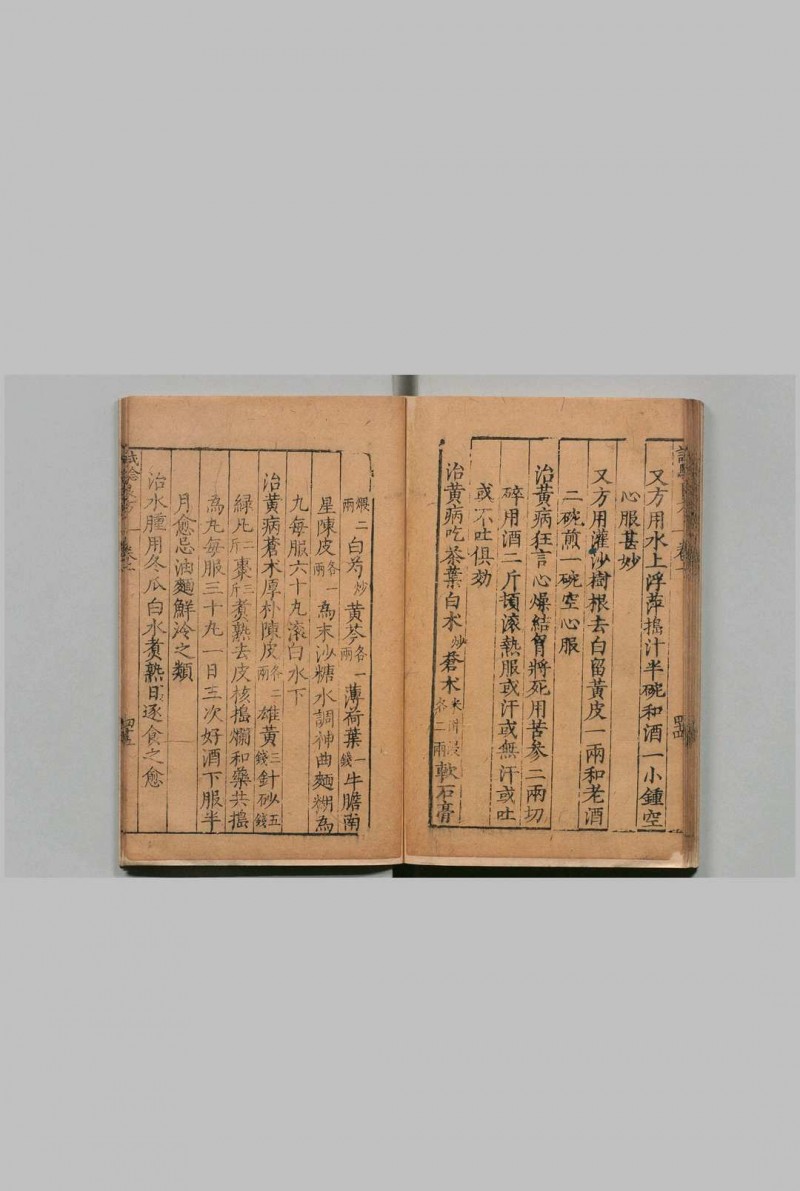 又方用水上浮萍搗汁半碗和酒一小鍾空
心服甚妙
又方用灌沙樹根去白留黃皮一兩和老酒
二碗煎一碗空心服
治黃病狂言心燥結胷將死用苦參二兩切
碎用酒二斤頓滚熱服或汗或無汗或吐
或不吐俱効
治黃病吃茶葉白术炒蒼术米泔浸各二兩軟石膏
煆二兩白芍炒黃芩各一兩薄荷葉一錢牛膽南
星陳皮各一兩為末沙糖水調神曲麵糊為
丸每服六十丸滚白水下
治黃病蒼术厚朴陳皮各二兩雄黃三錢針砂五錢
綠凡二斤棗三斤煮熟去皮核搗爛和藥共搗
為丸每服三十丸一日三次好酒下服半
月愈忌油麵鮮冷之類
治水腫用冬瓜白水煮熟日逐食之愈
卷